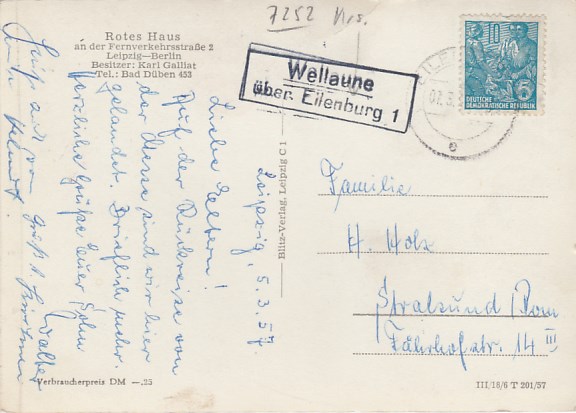 7252 Krs.
Rotes Haus
an der Fernverkehrsstraße 2
Leipzig—Berlin
Besitzer: Karl Galliat
Tel.: Bad Düben 453
Wellaune
über Eilenburg 1
10
5
DEUTSCHE
DEMOKRATISCHE REPUBLIK
Leipzig, 5.3.57.
Liebe Eltern!
Auf der Rückreise von
der Messe sind wir hier
gelandet. Brieflich mehr.
Herzliche Grüße Euer Sohn
Walter
Blitz-Verlag, Leipzig C 1
Familie
H. Holz
Stralsund / Pom
Fährhofstr. 14 III
Verbraucherpreis DM —,25
III/18/6 T 201/57